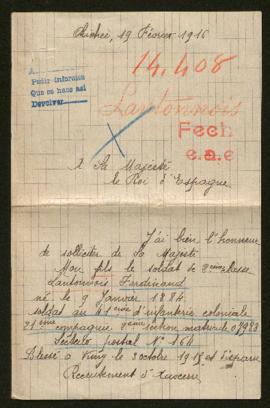 19 Février 1916
14.408
A
Pedir informes
Que se haga así
Lantonnois
Fech
e.a.e
A Sa Majesté
le Roi d'Espagne
J'ai bien l'honneur
de solliciter de Sa Majesté
Mon fils le soldat de 2eme classe
Lantonnois Ferdinand
né le 9 Janvier 1884
soldat au 41eme d'infanterie coloniale
21eme compagnie 2eme section
Secteur postal N° 164
Blessé à Vimy le 3 octobre 1915 et disparu
Recrutement d'Auxerre